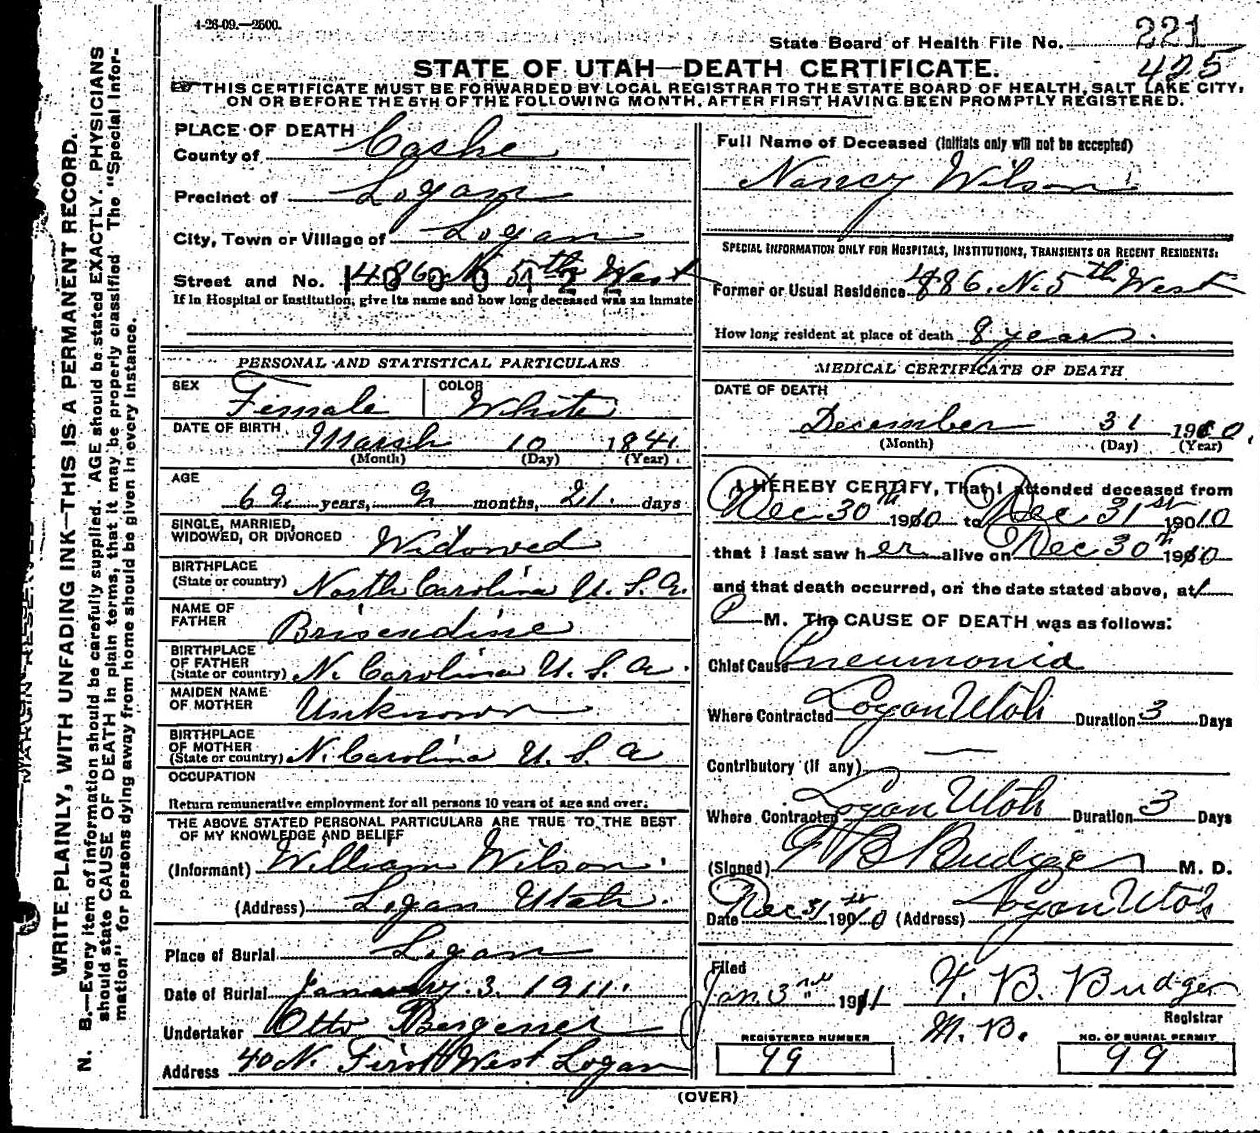 4-26-09.—2500.
State Board of Health File No. 221
425
STATE OF UTAH—DEATH CERTIFICATE.
THIS CERTIFICATE MUST BE FORWARDED BY LOCAL REGISTRAR TO THE STATE BOARD OF HEALTH, SALT LAKE CITY,
ON OR BEFORE THE 5TH OF THE FOLLOWING MONTH, AFTER FIRST HAVING BEEN PROMPTLY REGISTERED.
PLACE OF DEATH
County of Cashe
Precinct of Logan
City, Town or Village of Logan
Street and No. 486 N. 5th West
If in Hospital or Institution, give its name and how long deceased was an inmate
PERSONAL AND STATISTICAL PARTICULARS
SEX Female COLOR White
DATE OF BIRTH March 10 1841
(Month) (Day) (Year)
AGE
69 years, 9 months, 21 days
SINGLE, MARRIED,
WIDOWED, OR DIVORCED Widowed
BIRTHPLACE
(State or country) North Carolina U. S. A.
NAME OF
FATHER Brisendine
BIRTHPLACE
OF FATHER
(State or country) N. Carolina U. S. A.
MAIDEN NAME
OF MOTHER Unknown
BIRTHPLACE
OF MOTHER
(State or country) N. Carolina U. S. A
OCCUPATION
Return remunerative employment for all persons 10 years of age and over.
THE ABOVE STATED PERSONAL PARTICULARS ARE TRUE TO THE BEST
OF MY KNOWLEDGE AND BELIEF
(Informant) William Wilson.
(Address) Logan Utah.
Place of Burial Logan
Date of Burial January. 3. 1911.
Undertaker Otto
Address 40 N. First West Logan
Full Name of Deceased (Initials only will not be accepted)
Nancy Wilson
SPECIAL INFORMATION ONLY FOR HOSPITALS, INSTITUTIONS, TRANSIENTS OR RECENT RESIDENTS:
Former or Usual Residence 486. N. 5th West
How long resident at place of death 8 years.
MEDICAL CERTIFICATE OF DEATH
DATE OF DEATH
December 31 1910.
(Month) (Day) (Year)
I HEREBY CERTIFY, That I attended deceased from
Dec 30th 1910 to Dec 31st 1910
that I last saw her alive on Dec 30th 1910
and that death occurred, on the date stated above, at
P M. The CAUSE OF DEATH was as follows:
Chief Cause Pneumonia
Where Contracted Logan Utah Duration 3 Days
Contributory (if any) —
Where Contracted Logan Utah Duration 3 Days
(Signed) T B Budge M. D.
Date Dec 31st 1910 (Address) Logan Utah
Filed
Jan. 3rd 1911 T. B. Budge
Registrar
M. D.
REGISTERED NUMBER
99
NO. OF BURIAL PERMIT
99
(OVER)
WRITE PLAINLY, WITH UNFADING INK—THIS IS A PERMANENT RECORD.
N. B.—Every item of information should be carefully supplied. AGE should be stated EXACTLY. PHYSICIANS
should state CAUSE OF DEATH in plain terms, that it may be properly classified. The "Special Infor-
mation" for persons dying away from home should be given in every instance.